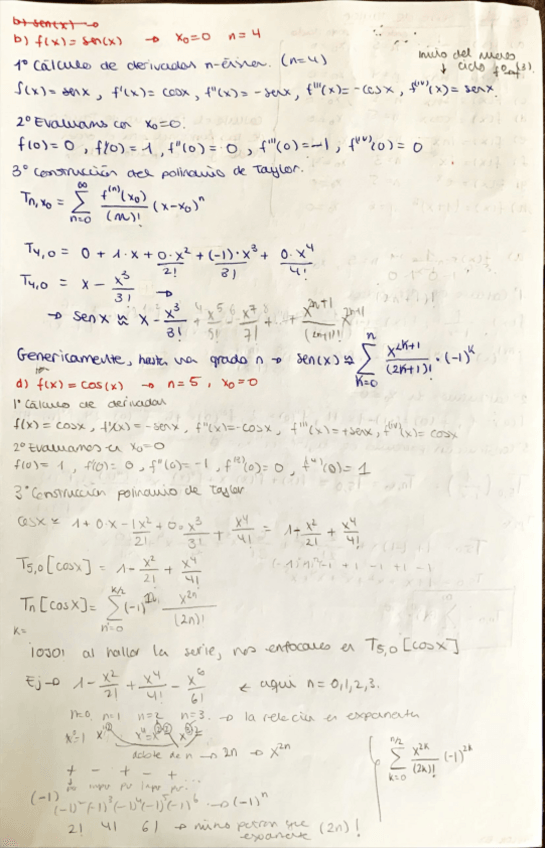 b) sen(x) →
b) f(x) = sen(x) → x₀=0 n=4
inicio del nuevo
↓ ciclo
1º Cálculo de derivadas n-ésimas. (n=4)
f(x) = senx, f'(x) = cosx, f''(x) = -senx, f'''(x) = -cosx, f^(iv)(x) = senx.
2º Evaluamos en x₀=0.
f(0)=0, f'(0)=1, f''(0)=0, f'''(0)=-1, f^(iv)(0)=0
3º Construcción del polinomio de Taylor.
T_{n,x₀} = ∑_{n=0}^{∞} f^(n)(x₀)/(n)! (x-x₀)^n
T_{4,0} = 0 + 1·x + 0·x²/2! + (-1)·x³/3! + 0·x⁴/4!
T_{4,0} = x - x³/3! →
→ senx ≈ x - x³/3! + x⁵/5! - x⁷/7! + ... + x^{2n+1}/(2n+1)!
Genericamente, hasta un grado n → sen(x) ≈ ∑_{k=0}^{n} x^{2k+1}/(2k+1)! · (-1)^k
d) f(x) = cos(x) → n=5, x₀=0
1º Cálculo de derivadas
f(x) = cosx, f'(x) = -senx, f''(x) = -cosx, f'''(x) = +senx, f^(iv)(x) = cosx
2º Evaluamos en x₀=0
f(0) = 1, f'(0) = 0, f''(0) = -1, f^(3)(0) = 0, f^(4)(0) = 1
3º Construcción polinomio de Taylor
cosx ≈ 1 + 0·x - 1x²/2! + 0·x³/3! + x⁴/4! = 1 - x²/2! + x⁴/4!
T_{5,0}[cosx] = 1 - x²/2! + x⁴/4!
T_n[cosx] = ∑_{n=0}^{k/2} (-1)^n x^{2n}/(2n)!
k=
¡OJO! al hallar la serie, nos enfocamos en T_{5,0}[cosx]
Ej → 1 - x²/2! + x⁴/4! - x⁶/6! ← aquí n=0,1,2,3.
n=0 n=1 n=2 n=3. → la relación es exponente
doble de n → 2n → x^{2n}
∑_{k=0}^{n/2} x^{2k}/(2k)! (-1)^{2k}
+ - + - + ...
→ (-1)^n
2! 4! 6! → mismo patrón que
exponente (2n)!